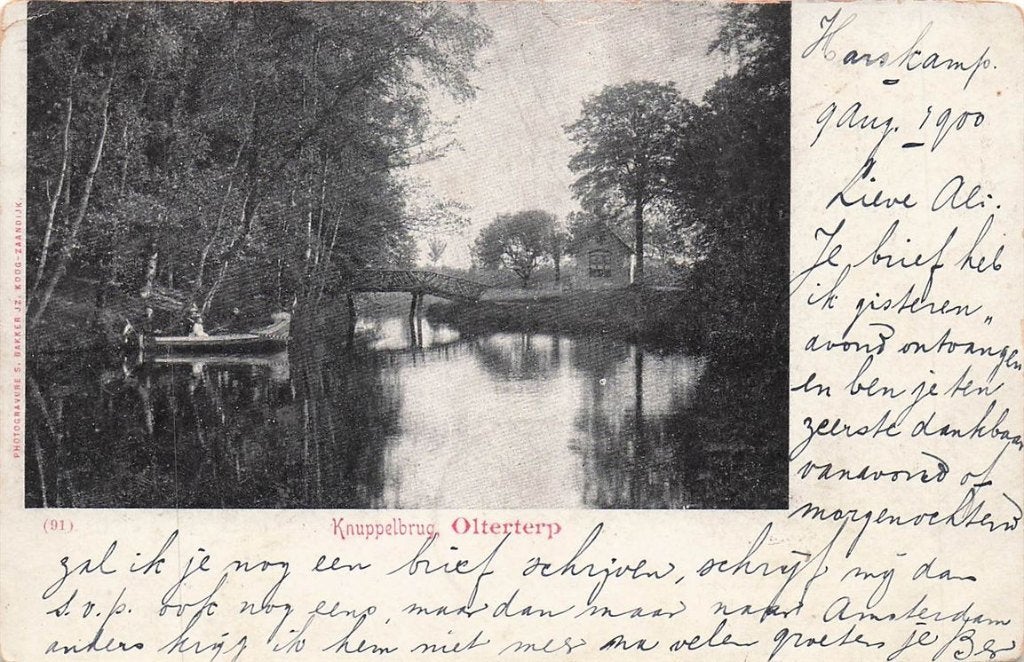 Harskamp.
9 Aug. 1900
Lieve Ali.
Je brief heb
ik gisteren„
avond ontvangen
en ben je ten
zeerste dankbaar
vanavond of
morgenochtend
PHOTOGRAVURE S. BAKKER JZ. KOOG-ZAANDIJK.
(91) Knuppelbrug, Olterterp
zal ik je nog een brief schrijven, schrijf mij dan
s.v.p. ook nog eens, maar dan maar naar Amsterdam
anders krijg ik hem niet meer na velen groeten je